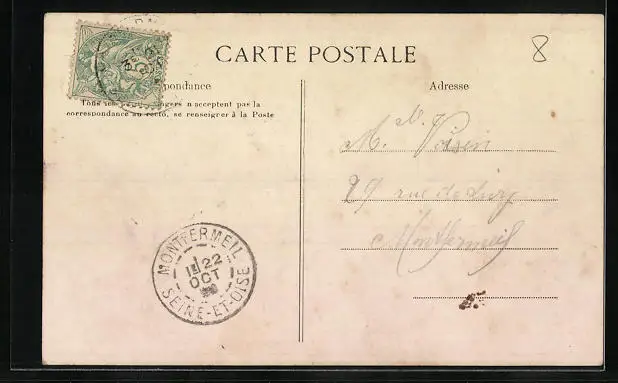 CARTE POSTALE
8
pondance
Adresse
Tous les pays étrangers n'acceptent pas la
correspondance au recto, se renseigner à la Poste
M. N. Voisin
29 rue de
Montfermeil
MONTFERMEIL
22
OCT
SEINE-ET-OISE